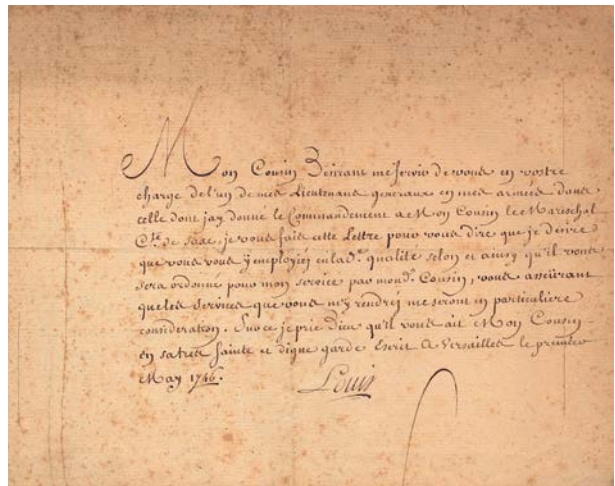 Mon Cousin Desirant me servir de vous en vostre
charge de l'un de mes Lieutenans generaux en mes armées dans
celle dont jay donné le Commandement a Mon Cousin le Mareschal
Cte. de Saxe, je vous fais cette Lettre pour vous dire que je desire
que vous vous y employiez en lad. qualité selon et ainsy qu'il vous
sera ordonné pour mon service par mond. Cousin, vous asseurant
que les services que vous m'y rendrez me seront en particuliere
consideration. Sur ce je prie Dieu qu'il vous ait Mon Cousin
en sa tres sainte et digne garde Escrit a Versailles le premier
May 1746.
Louis